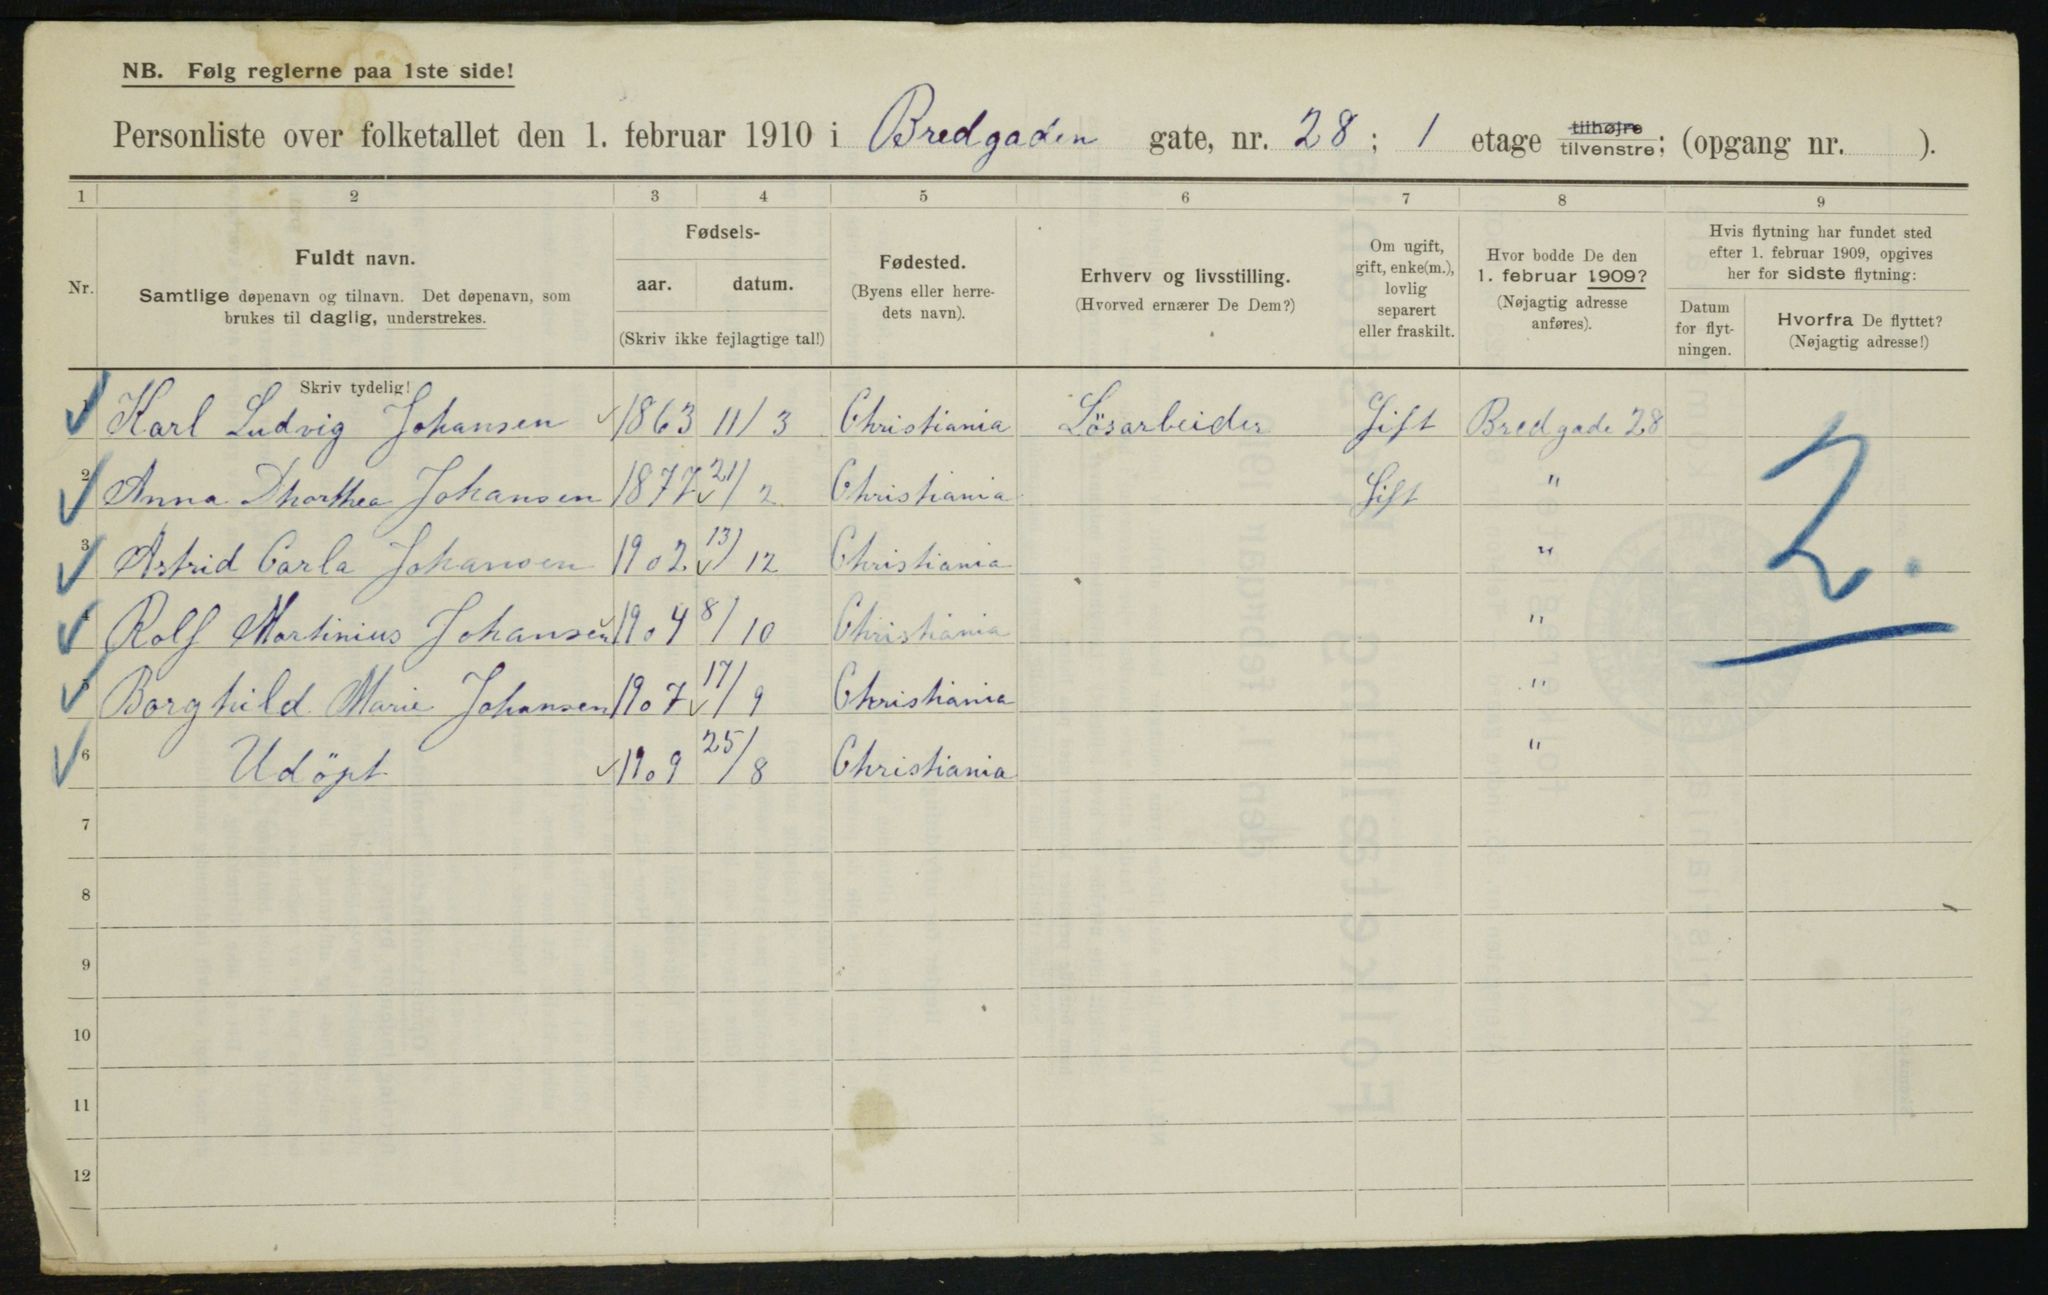 NB. Følg reglerne paa 1ste side!
Personliste over folketallet den 1. februar 1910 i Bredgaden gate, nr. 28; 1 etage tilhøjre tilvenstre; (opgang nr. ).
1 2 3 4 5 6 7 8 9
Nr.
Fuldt navn.
Samtlige døpenavn og tilnavn. Det døpenavn, som
brukes til daglig, understrekes.
Fødsels-
aar. datum.
(Skriv ikke fejlagtige tal!)
Fødested.
(Byens eller herre-
dets navn).
Erhverv og livsstilling.
(Hvorved ernærer De Dem?)
Om ugift,
gift, enke(m.),
lovlig
separert
eller fraskilt.
Hvor bodde De den
1. februar 1909?
(Nøjagtig adresse
anføres).
Hvis flytning har fundet sted
efter 1. februar 1909, opgives
her for sidste flytning:
Datum
for flyt-
ningen.
Hvorfra De flyttet?
(Nøjagtig adresse!)
Skriv tydelig!
1 Karl Ludvig Johansen 1863 11/3 Christiania Lösarbeider Gift Bredgade 28
2 Anna Dhorthea Johansen 1877 21/2 Christiania Gift "
3 Astrid Carla Johansen 1902 13/12 Christiania "
4 Rolf Martinius Johansen 1904 8/10 Christiania "
5 Borghild Marie Johansen 1907 17/9 Christiania "
6 Udöpt 1909 25/8 Christiania "
2.
7
8
9
10
11
12